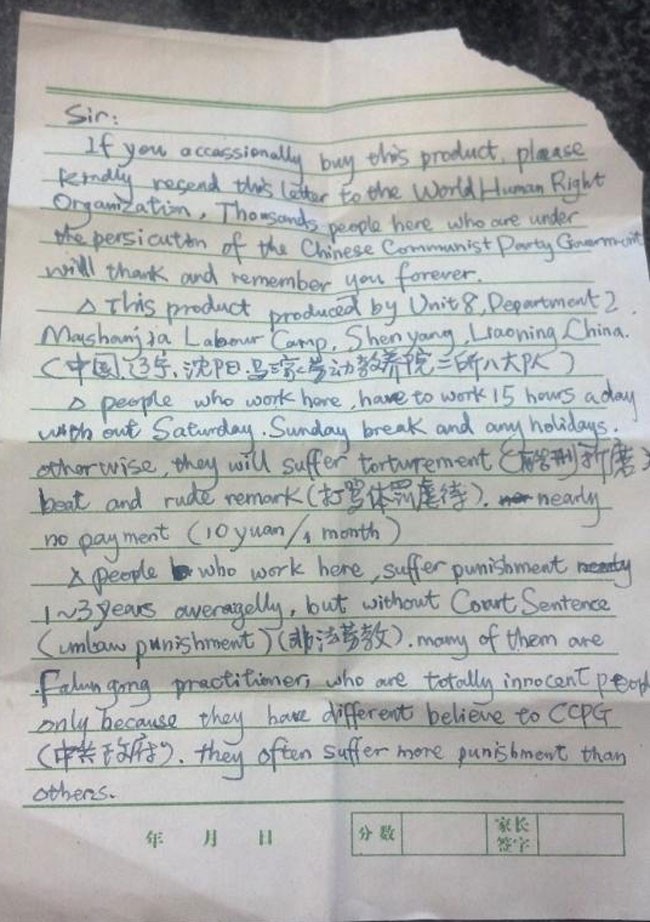 Sir:
If you accassionally buy this product, please
kindly resend this letter to the World Human Right
Organization, Thousands people here who are under
the persicuton of the Chinese Communist Party Goverment
will thank and remember you forever.
△ This product produced by Unit 8, Department 2,
Mashanjia Labour Camp, Shenyang, Liaoning, China.
(中国,辽宁,沈阳,马三家劳动教养院二所八大队)
△ people who work here, have to work 15 hours a day
with out Saturday. Sunday break and any holidays.
otherwise, they will suffer torturement (酷刑折磨)
beat and rude remark (打骂体罚虐待). nearly
no payment (10 yuan/1 month)
△ people who work here, suffer punishment
1~3 years averagelly, but without Court Sentence
(unlaw punishment) (非法劳教). many of them are
Falun gong practitioner, who are totally innocent people
only because they have different believe to CCPG
(中共政府). they often suffer more punishment than
others.
年 月 日 分数 家长签字